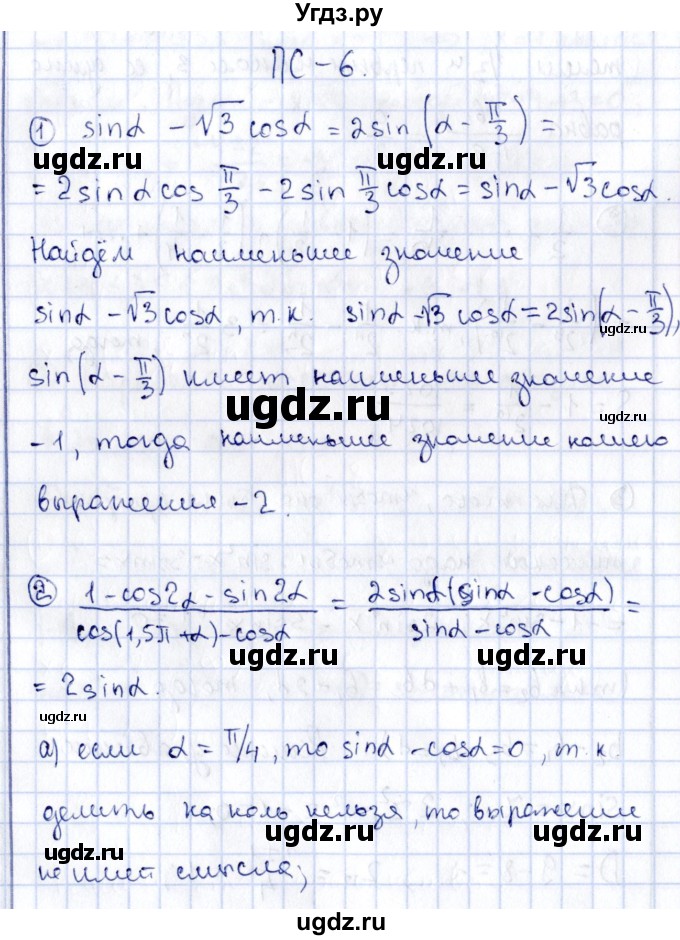 Угдз.ру
ПС-6.
① sinα - √3 cosα = 2sin(α - π/3) =
ugdz.ru ugdz.ru
= 2sinα cos π/3 - 2sin π/3 cosα = sinα - √3cosα.
Найдём наименьшее значение
sinα - √3cosα, т.к. sinα - √3 cosα = 2sin(α - π/3),
ugdz.ru
sin(α - π/3) имеет наименьшее значение
ugdz.ru
-1, тогда наименьшее значение нашего
ugdz.ru
выражения -2.
② (1 - cos2α - sin2α)/(cos(1,5π + α) - cosα) = (2sinα(sinα - cosα))/(sinα - cosα) =
ugdz.ru ugdz.ru
= 2sinα.
ugdz.ru
а) если α = π/4, то sinα - cosα = 0, т.к.
ugdz.ru
делить на ноль нельзя, то выражение
ugdz.ru ugdz.ru
не имеет смысла;
ugdz.ru